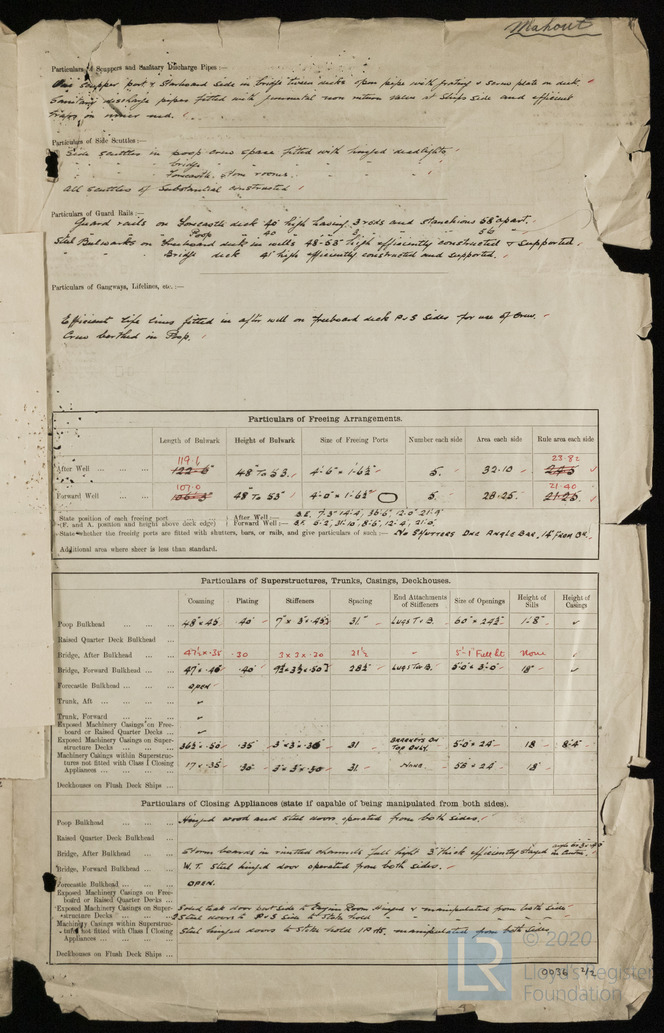 Mahout
Particulars of Scuppers and Sanitary Discharge Pipes :—
One scupper port & Starboard side in bridge tween decks open pipe with grating & screw plate on deck.
Sanitary discharge pipes fitted with non return valves at Ships side and efficient
traps on inner end.
Particulars of Side Scuttles :—
Side scuttles in poop crew space fitted with hinged deadlights
" " " bridge " " " "
" " " Forecastle store rooms " " "
All scuttles of Substantial construction
Particulars of Guard Rails :—
Guard rails on Forecastle deck 40" high having 3 rods and stanchions 58" apart.
" " " Poop " 40 " " 3 " " " 56 "
Steel Bulwarks on Freeboard deck in wells 48-53" high efficiently constructed & supported.
" " " Bridge deck 41" high efficiently constructed and supported.
Particulars of Gangways, Lifelines, etc. :—
Efficient life lines fitted in after well on freeboard deck P & S sides for use of Crew.
Crew berthed in Poop.
Particulars of Freeing Arrangements.
Length of Bulwark Height of Bulwark Size of Freeing Ports Number each side Area each side Rule area each side
119.6 23.82
After Well ... ... ... 122-6" 48" To 53. 4'-6" × 1'-6½" 5. 32.10 24.5
107.0 21.40
Forward Well ... ... 106-3" 48" To 53" 4'-0" × 1'-6½" 5. 28.25. 21.25
State position of each freeing port ... After Well :—
(F. and A. position and height above deck edge) Forward Well :—
State whether the freeing ports are fitted with shutters, bars, or rails, and give particulars of each :— No Shutters One Angle Bar,
Additional area where sheer is less than standard.
Particulars of Superstructures, Trunks, Casings, Deckhouses.
Coaming Plating Stiffeners Spacing End Attachments of Stiffeners Size of Openings Height of Sills Height of Casings
Poop Bulkhead ... ... ... 48" × .45 .40 7" × 3" × .45 31" Lugs T & B. 60" × 24½" 1'-8"
Raised Quarter Deck Bulkhead ...
Bridge, After Bulkhead ... ... 47½ × .35 .30 3 × 3 × .30 21½ 5'-1" Full ht None
Bridge, Forward Bulkhead ... ... 47" × .46 .40 28½ Lugs T & B. 5'0" × 3'-0" 18"
Forecastle Bulkhead ... ... ... Open
Trunk, Aft ... ... ... ...
Trunk, Forward ... ... ...
Exposed Machinery Casings on Freeboard or Raised Quarter Decks ...
Exposed Machinery Casings on Superstructure Decks ... ... ... 36½ × .50 .35 31 Brackets On Top Only. 5'0" × 24" 18 8'-4"
Machinery Casings within Superstructures not fitted with Class I Closing Appliances ... ... ... ... 17 × .35 .30 31. None 58 × 24" 18"
Deckhouses on Flush Deck Ships ...
Particulars of Closing Appliances (state if capable of being manipulated from both sides).
Poop Bulkhead ... ... ... Hinged wood and steel doors operated from both sides.
Raised Quarter Deck Bulkhead ...
Bridge, After Bulkhead ... ... Storm boards in riveted channels full hight 3" thick efficiently stayed in centre.
Bridge, Forward Bulkhead ... ... W.T. Steel hinged door operated from both sides.
Forecastle Bulkhead ... ... ... Open.
Exposed Machinery Casings on Freeboard or Raised Quarter Decks ...
Exposed Machinery Casings on Superstructure Decks ... ... ... Solid teak door port side to Engine Room Hinged & manipulated from both sides
2 Steel doors to P & S side to Stoke hold " " " "
Machinery Casings within Superstructures not fitted with Class I Closing Appliances ... ... ... ... Steel hinged doors to Stoke hold 1P 1S, manipulated from both sides
Deckhouses on Flush Deck Ships ...
LR
© 2020
Lloyd's Register
Foundation
0036 2/2